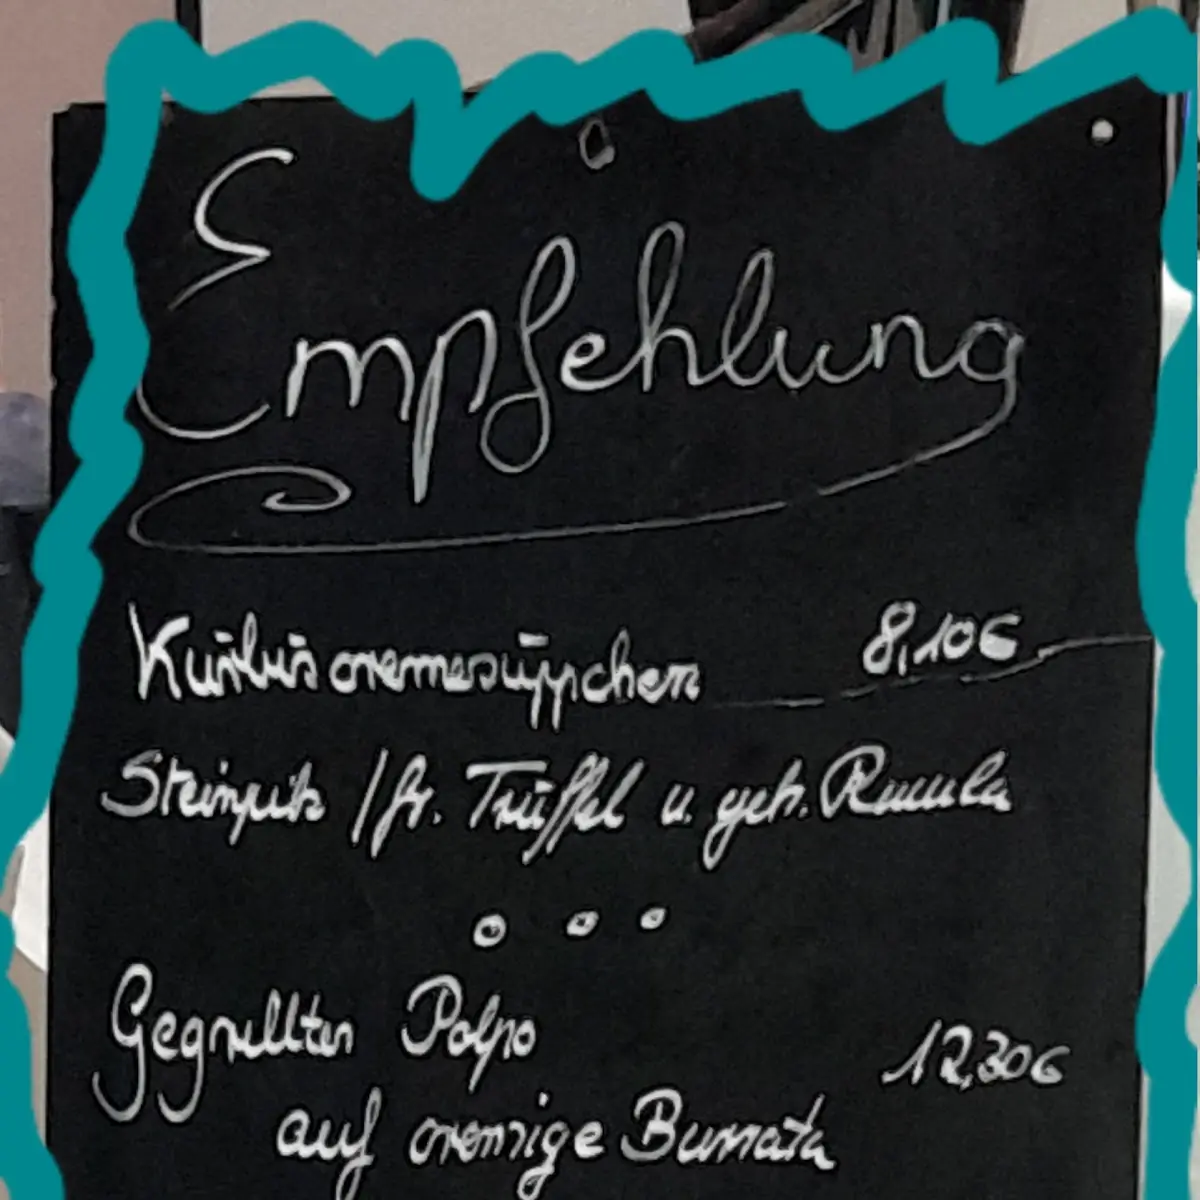 Empfehlung
Kürbiscremesüppchen 8,10€
Steinpilz / fr. Trüffel u. geh. Rucola
Gegrillter Polpo 12,30€
auf cremige Burrata